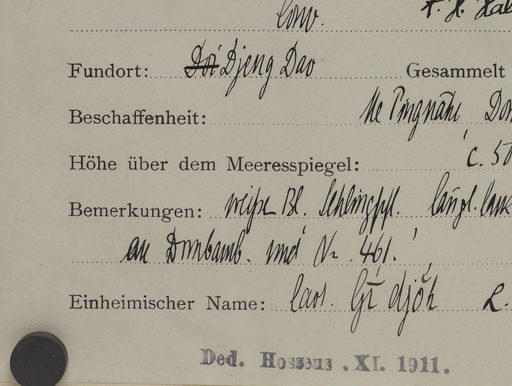 Fundort: Doi Djeng Dao Gesammelt
Beschaffenheit: Me Pingnähe
Höhe über dem Meeresspiegel: c. 50
Bemerkungen: weiße Bl. Schlingpfl.
an Dornbamb. und No 461.
Einheimischer Name: laos.
Ded. Hosseus .XI. 1911.